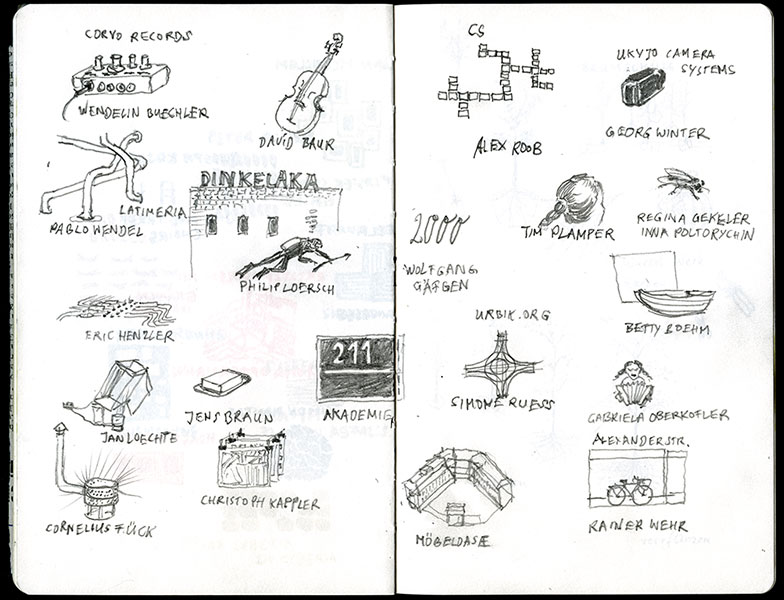 CORVO RECORDS
WENDELIN BUECHLER
DAVID BAUR
LATIMERIA
PABLO WENDEL
DINKELAKA
PHILIP LOERSCH
ERIC HENZLER
JAN LOECHTE
JENS BRAUN
211
AKADEMIE
CORNELIUS FÜCK
CHRISTOPH KAPPLER
CS
ALEX ROOB
UKYJO CAMERA
SYSTEMS
GEORG WINTER
2000
WOLFGANG
GÄFGEN
TIM PLAMPER
REGINA GEKELER
INNA POLTORYCHIN
BETTY BOEHM
URBIK.ORG
SIMONE RUESS
GABRIELA OBERKOFLER
MÖBELOASE
ALEXANDERSTR.
RAINER WEHR